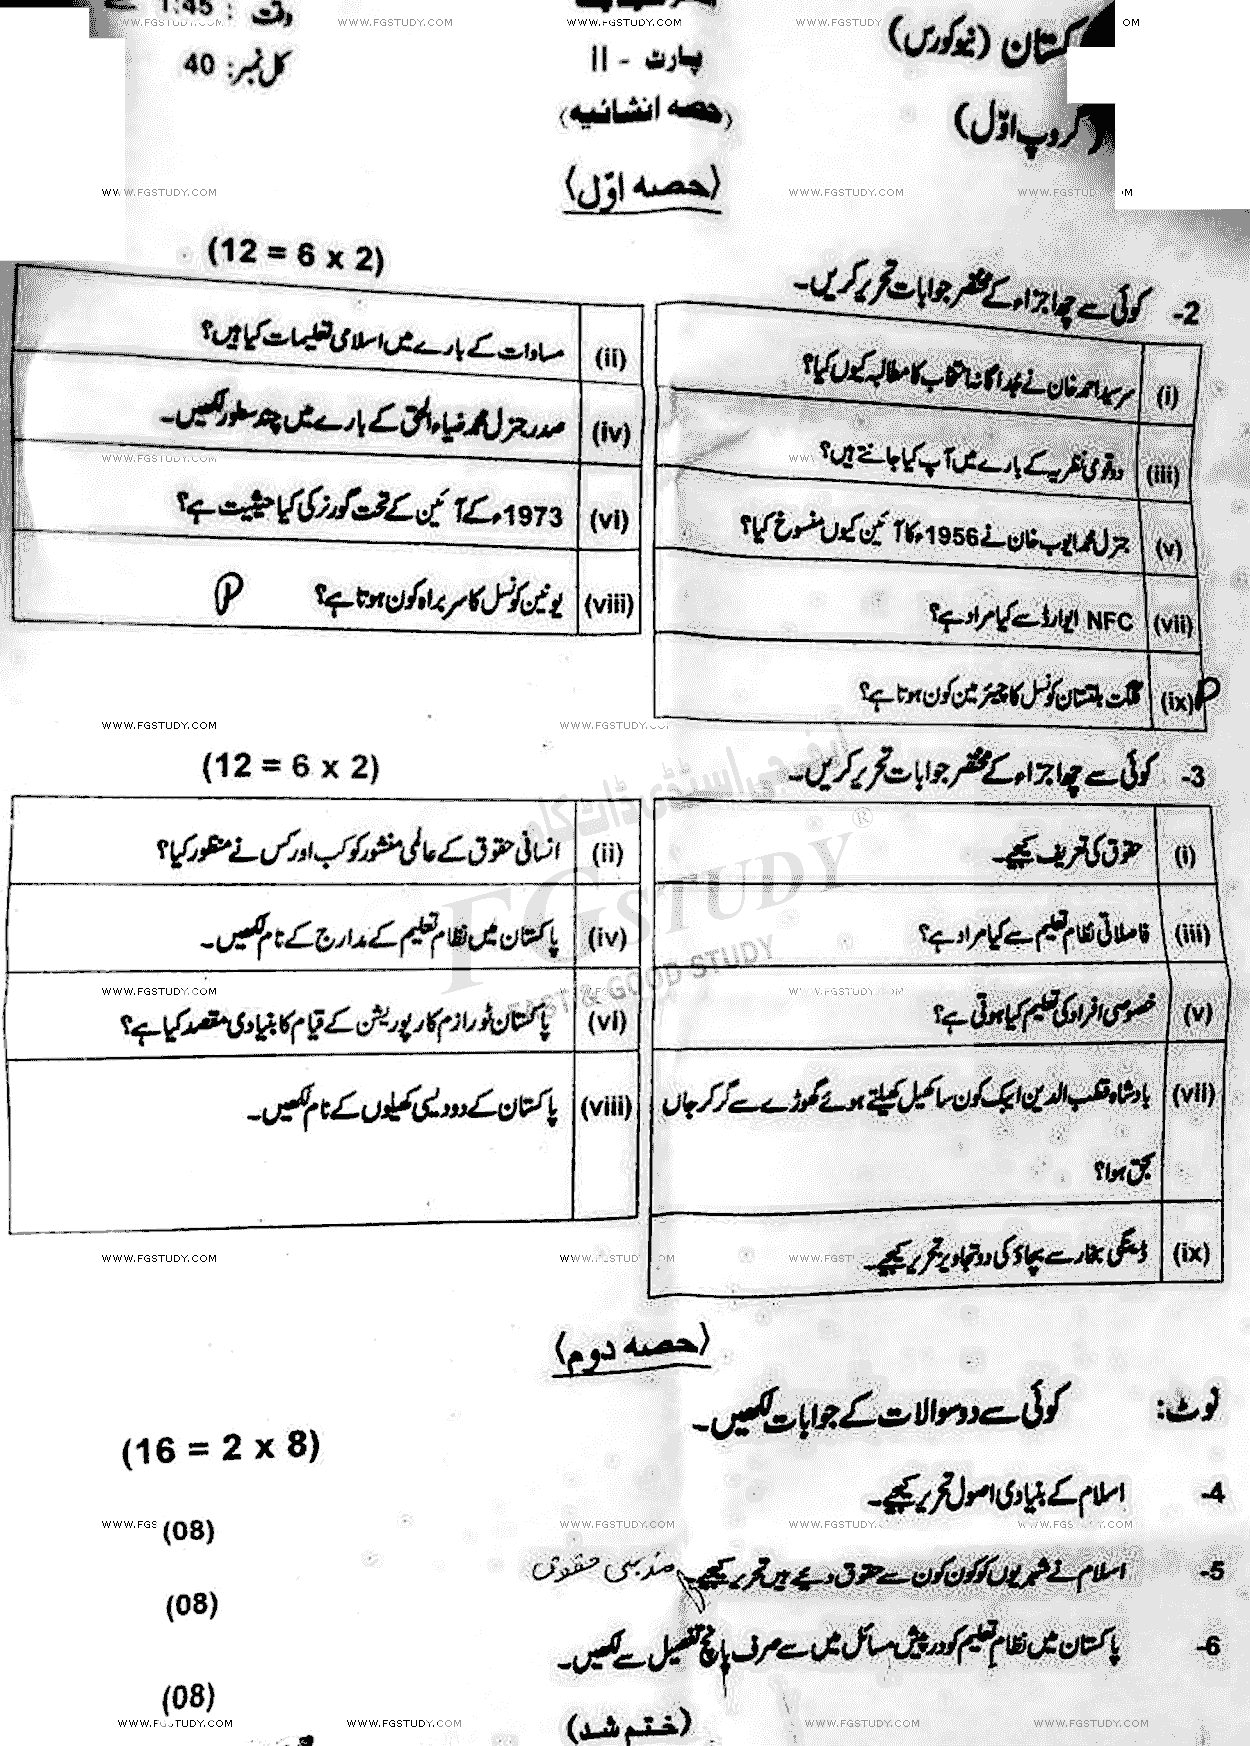 وقت : 1:45
پارٹ - II
کستان (نیو کورس)
کل نمبر: 40
(حصہ انشائیہ)
(گروپ اوّل)
(حصہ اوّل)
2- کوئی سے چھ اجزاء کے مختصر جوابات تحریر کریں۔ (12 = 6 x 2)
(i) سرسید احمد خان نے جداگانہ انتخاب کا مطالبہ کیوں کیا؟
(ii) مساوات کے بارے میں اسلامی تعلیمات کیا ہیں؟
(iii) دو قومی نظریہ کے بارے میں آپ کیا جانتے ہیں؟
(iv) صدر جنرل محمد ضیاء الحق کے بارے میں چند سطور لکھیں۔
(v) جنرل محمد ایوب خان نے 1956ء کا آئین کیوں منسوخ کیا؟
(vi) 1973ء کے آئین کے تحت گورنر کی کیا حیثیت ہے؟
(vii) NFC ایوارڈ سے کیا مراد ہے؟
(viii) یونین کونسل کا سربراہ کون ہوتا ہے؟
(ix) گلگت بلتستان کونسل کا چیئرمین کون ہوتا ہے؟
3- کوئی سے چھ اجزاء کے مختصر جوابات تحریر کریں۔ (12 = 6 x 2)
(i) حقوق کی تعریف کیجیے۔
(ii) انسانی حقوق کے عالمی منشور کو کب اور کس نے منظور کیا؟
(iii) فاصلاتی نظام تعلیم سے کیا مراد ہے؟
(iv) پاکستان میں نظام تعلیم کے مدارج کے نام لکھیں۔
(v) خصوصی افراد کی تعلیم کیا ہوتی ہے؟
(vi) پاکستان ٹورازم کارپوریشن کے قیام کا بنیادی مقصد کیا ہے؟
(vii) بادشاہ قطب الدین ایبک کون سا کھیل کھیلتے ہوئے گھوڑے سے گر کر جاں
بحق ہوا؟
(viii) پاکستان کے دو دیسی کھیلوں کے نام لکھیں۔
(ix) ڈینگی بخار سے بچاؤ کی دو تجاویز تحریر کیجیے۔
(حصہ دوم)
نوٹ: کوئی سے دو سوالات کے جوابات لکھیں۔ (16 = 2 x 8)
4- اسلام کے بنیادی اصول تحریر کیجیے۔ (08)
5- اسلام نے شہریوں کو کون کون سے حقوق دیے ہیں تحریر کیجیے۔ مذہبی حقوق (08)
6- پاکستان میں نظام تعلیم کو درپیش مسائل میں سے صرف پانچ تفصیل سے لکھیں۔ (08)
(ختم شد)
WWW.FGSTUDY.COM
ایف جی اسٹڈی ڈاٹ کام
FGSTUDY®
FAST & GOOD STUDY